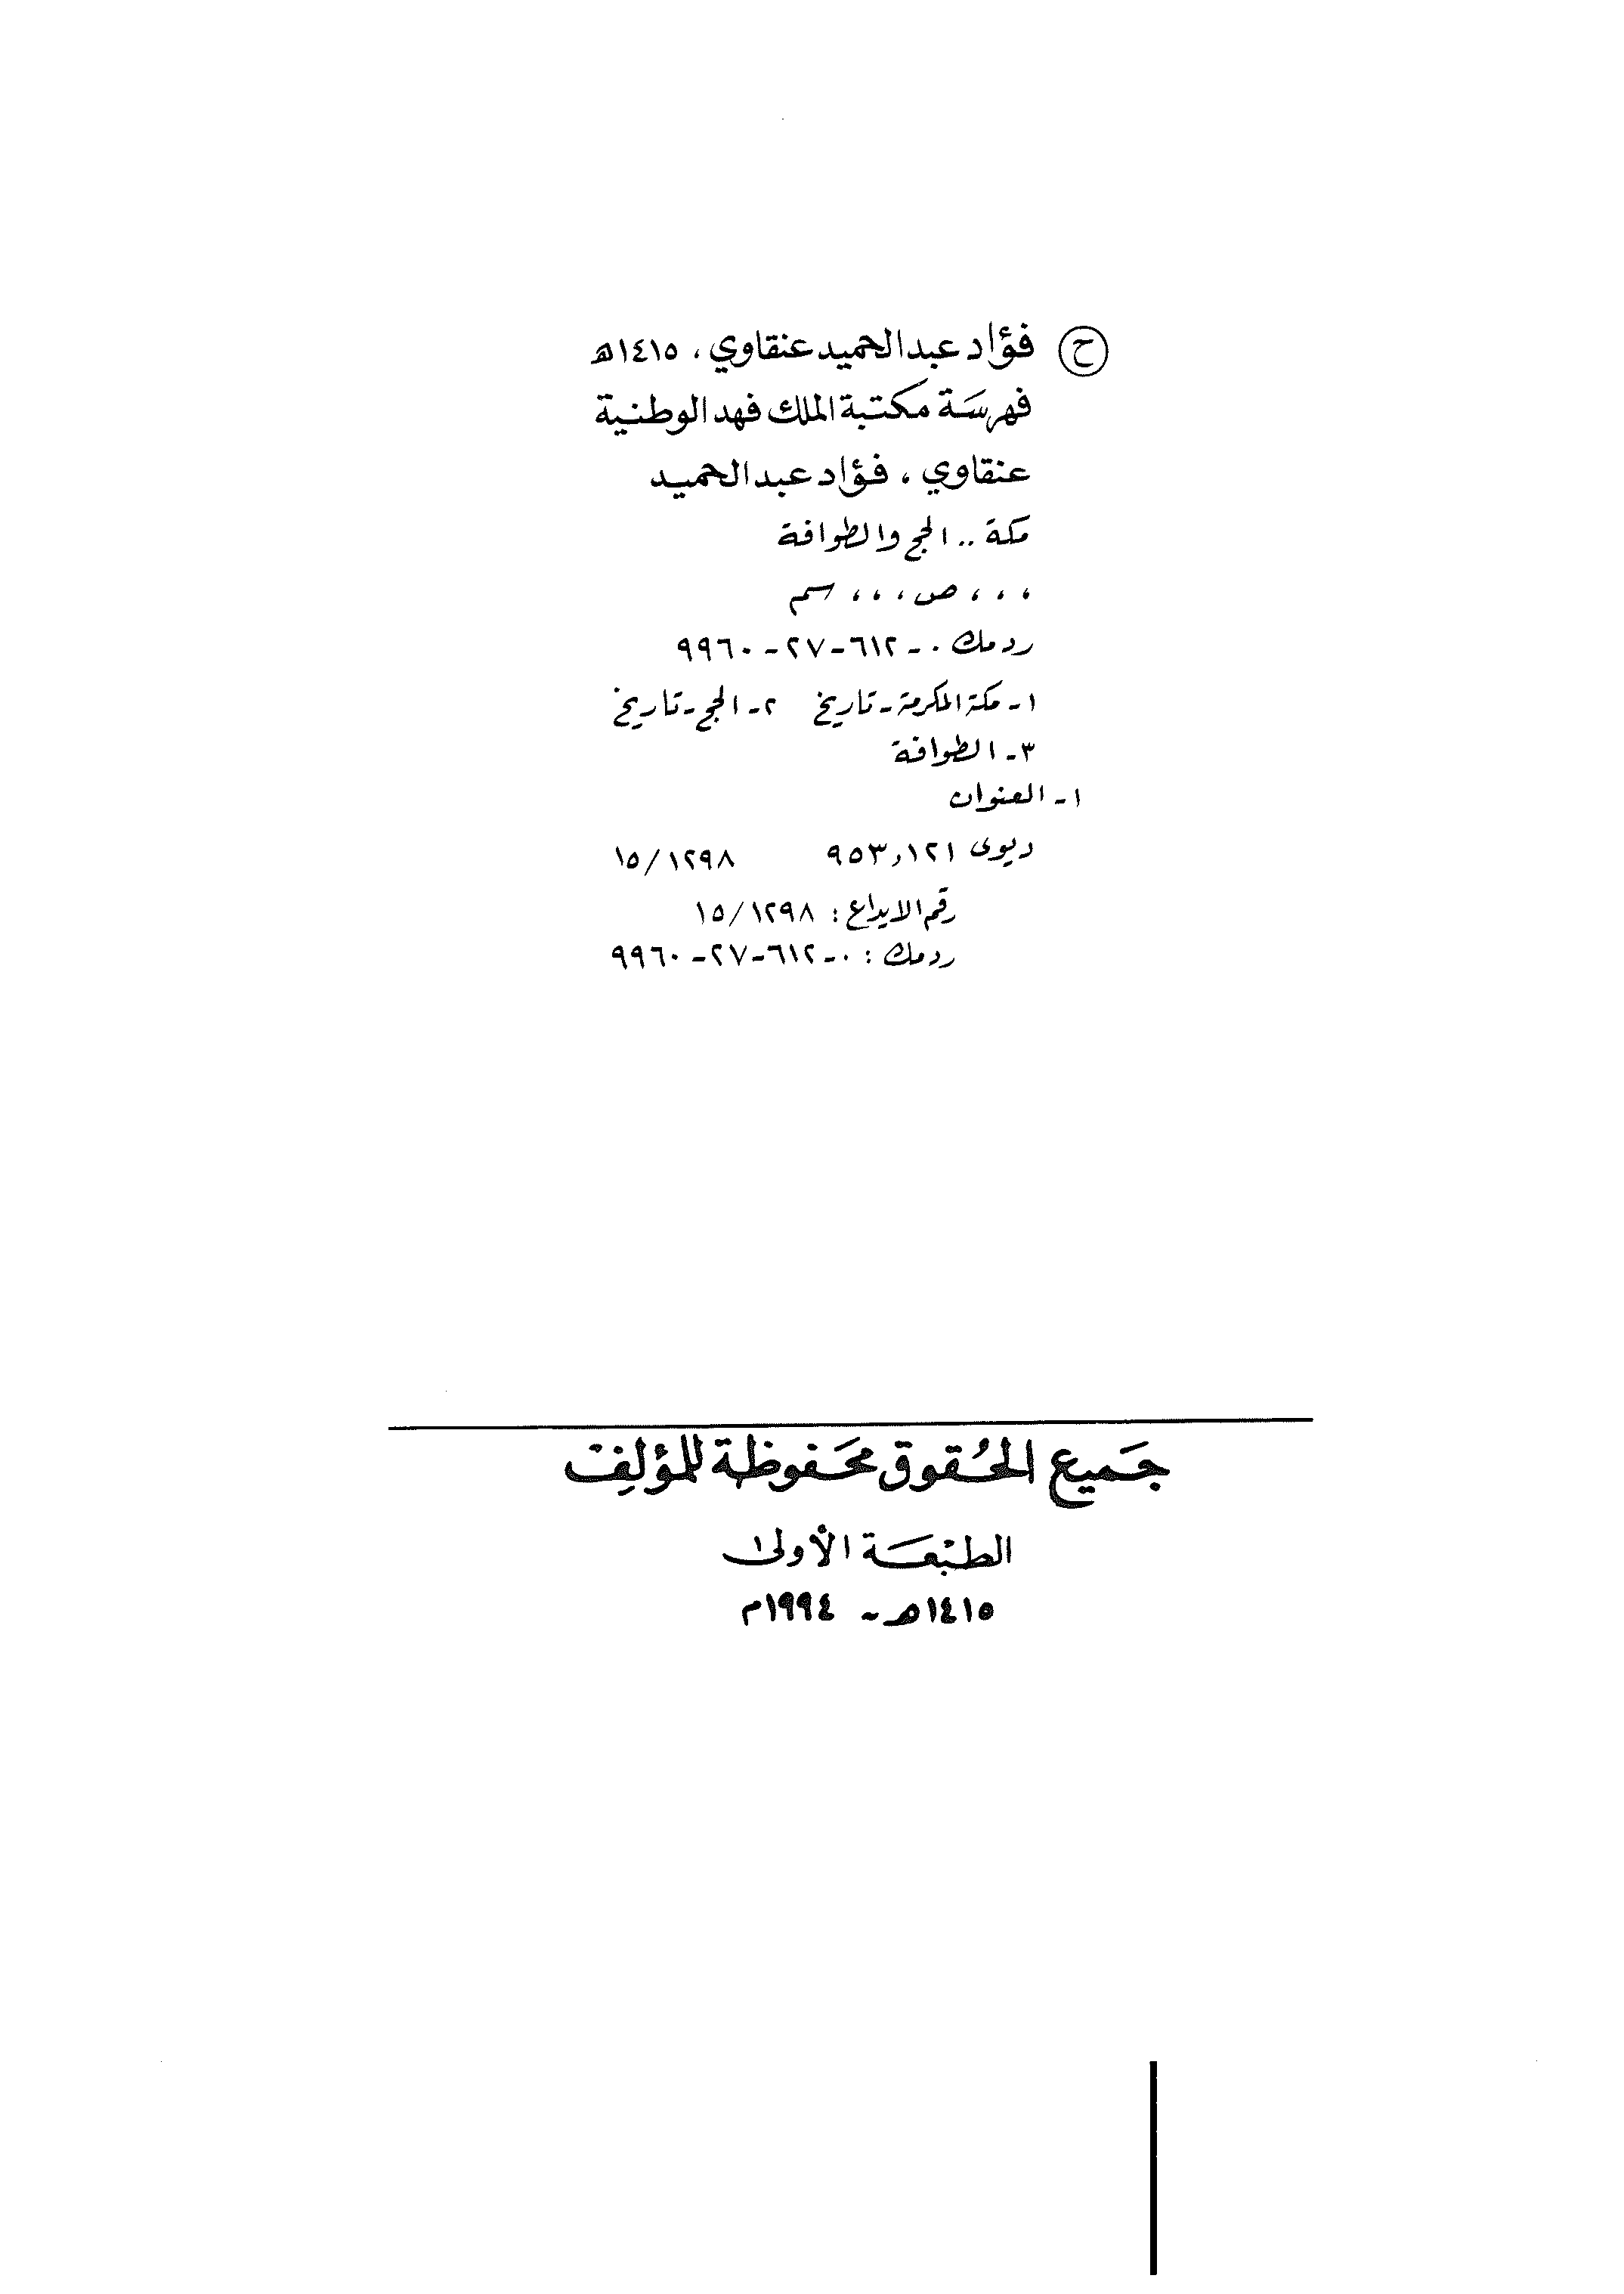 ح فؤاد عبدالحميد عنقاوي ، ١٤١٥هـ
فهرسَة مكتبة الملك فهد الوطنية
عنقاوي ، فؤاد عبدالحميد
مكة .. الحج والطوافة
، ، ، ص ، ، ، سم
ردمك ٠ - ٦١٢ - ٢٧ - ٩٩٦٠
١ - مكة المكرمة - تاريخ ٢ - الحج - تاريخ
٣ - الطوافة
١ - العنوان
ديوى ٩٥٣,١٢١ ١٥/١٢٩٨
رقم الايداع : ١٥/١٢٩٨
ردمك : ٠ - ٦١٢ - ٢٧ - ٩٩٦٠
جَميع الحُقوق محَفوظة للمؤلِف
الطبْعَة الأولى
١٤١٥هـ - ١٩٩٤م